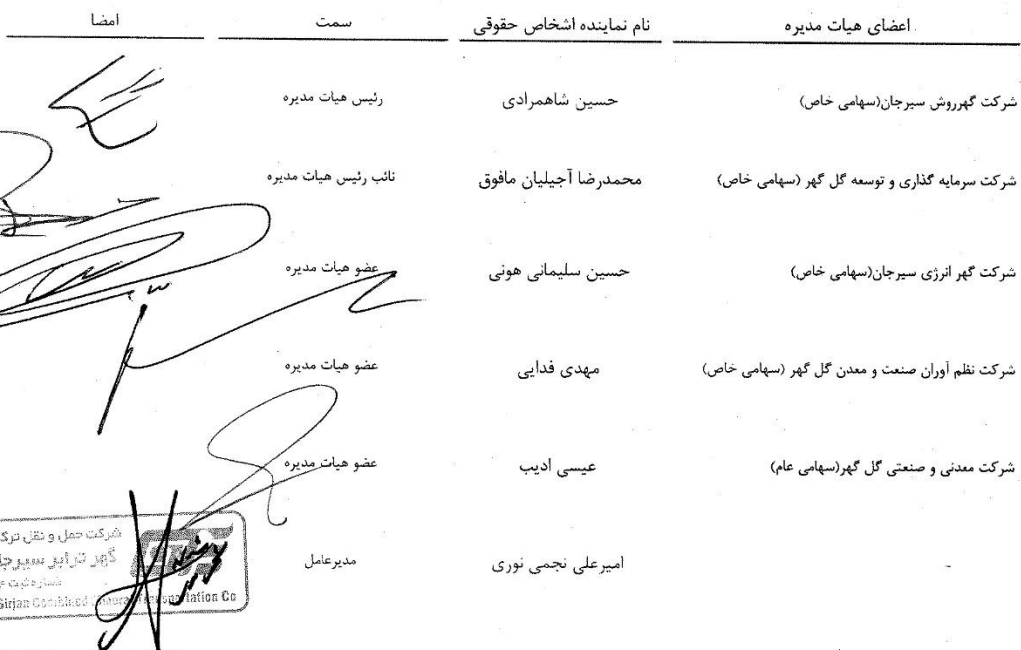 اعضای هیات مدیره نام نماینده اشخاص حقوقی سمت امضا
شرکت گهرروش سیرجان(سهامی خاص) حسین شاهمرادی رئیس هیات مدیره
شرکت سرمایه گذاری و توسعه گل گهر (سهامی خاص) محمدرضا آجیلیان مافوق نائب رئیس هیات مدیره
شرکت گهر انرژی سیرجان(سهامی خاص) حسین سلیمانی هونی عضو هیات مدیره
شرکت نظم آوران صنعت و معدن گل گهر (سهامی خاص) مهدی فدایی عضو هیات مدیره
شرکت معدنی و صنعتی گل گهر(سهامی عام) عیسی ادیب عضو هیات مدیره
- امیرعلی نجمی نوری مدیرعامل
شرکت حمل و نقل
گهر ترابر
شماره ثبت
Sirjan Combined Co